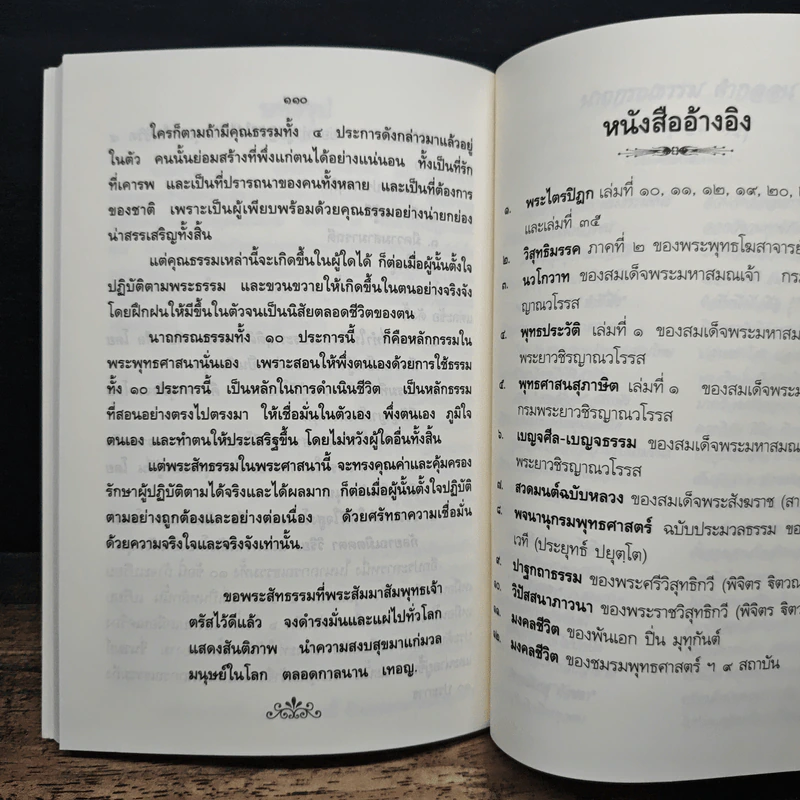 ๑๑๐
ใครก็ตามถ้ามีคุณธรรมทั้ง ๔ ประการดังกล่าวมาแล้วอยู่
ในตัว คนนั้นย่อมสร้างที่พึ่งแก่ตนได้อย่างแน่นอน ทั้งเป็นที่รัก
ที่เคารพ และเป็นที่ปรารถนาของคนทั้งหลาย และเป็นที่ต้องการ
ของชาติ เพราะเป็นผู้เพียบพร้อมด้วยคุณธรรมอย่างน่ายกย่อง
น่าสรรเสริญทั้งสิ้น
แต่คุณธรรมเหล่านี้จะเกิดขึ้นในผู้ใดได้ ก็ต่อเมื่อผู้นั้นตั้งใจ
ปฏิบัติตามพระธรรม และขวนขวายให้เกิดขึ้นในตนอย่างจริงจัง
โดยฝึกฝนให้มีขึ้นในตัวจนเป็นนิสัยตลอดชีวิตของตน
นาถกรณธรรมทั้ง ๑๐ ประการนี้ ก็คือหลักกรรมใน
พระพุทธศาสนานั่นเอง เพราะสอนให้พึ่งตนเองด้วยการใช้ธรรม
ทั้ง ๑๐ ประการนี้ เป็นหลักในการดำเนินชีวิต เป็นหลักธรรม
ที่สอนอย่างตรงไปตรงมา ให้เชื่อมั่นในตัวเอง พึ่งตนเอง ภูมิใจ
ตนเอง และทำตนให้ประเสริฐขึ้น โดยไม่หวังผู้ใดอื่นทั้งสิ้น
แต่พระสัทธรรมในพระศาสนานี้ จะทรงคุณค่าและคุ้มครอง
รักษาผู้ปฏิบัติตามได้จริงและได้ผลมาก ก็ต่อเมื่อผู้นั้นตั้งใจปฏิบัติ
ตามอย่างถูกต้องและอย่างต่อเนื่อง ด้วยศรัทธาความเชื่อมั่น
ด้วยความจริงใจและจริงจังเท่านั้น.
ขอพระสัทธรรมที่พระสัมมาสัมพุทธเจ้า
ตรัสไว้ดีแล้ว จงดำรงมั่นและแผ่ไปทั่วโลก
แสดงสันติภาพ นำความสงบสุขมาแก่มวล
มนุษย์ในโลก ตลอดกาลนาน เทอญ.
หนังสืออ้างอิง
๑. พระไตรปิฎก เล่มที่ ๑๐, ๑๑, ๑๒, ๑๙, ๒๐,
และเล่มที่ ๓๕
๒. วิสุทธิมรรค ภาคที่ ๒ ของพระพุทธโฆสาจารย์
๓. นวโกวาท ของสมเด็จพระมหาสมณเจ้า กรม
ญาณวโรรส
๔. พุทธประวัติ เล่มที่ ๑ ของสมเด็จพระมหาสม
พระยาวชิรญาณวโรรส
๕. พุทธศาสนสุภาษิต เล่มที่ ๑ ของสมเด็จพระม
กรมพระยาวชิรญาณวโรรส
๖. เบญจศีล-เบญจธรรม ของสมเด็จพระมหาสมณ
พระยาวชิรญาณวโรรส
๗. สวดมนต์ฉบับหลวง ของสมเด็จพระสังฆราช (สา
๘. พจนานุกรมพุทธศาสตร์ ฉบับประมวลธรรม ขอ
เวที (ประยุทธ์ ปยุตฺโต)
๙. ปาฐกถาธรรม ของพระศรีวิสุทธิกวี (พิจิตร ฐิตวณ
๑๐. วิปัสสนาภาวนา ของพระราชวิสุทธิกวี (พิจิตร ฐิตว
๑๑. มงคลชีวิต ของพันเอก ปิ่น มุทุกันต์
๑๒. มงคลชีวิต ของชมรมพุทธศาสตร์ ฯ ๙ สถาบัน